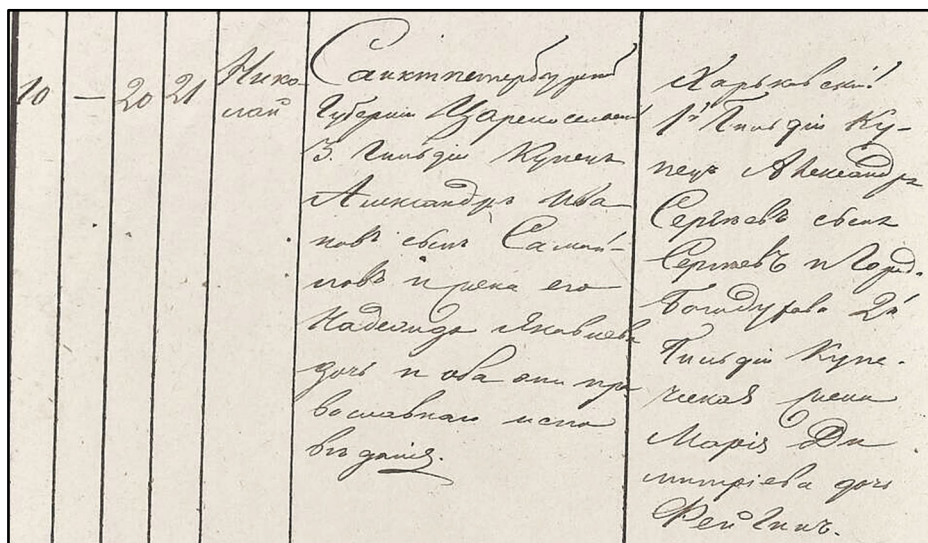 10 — 20 21
Нико-
лай
Санктпетербургской
Губерніи Царскосельскій
3. Гильдіи Купецъ
Александръ Ива
новъ сынъ Самой-
ловъ и жена его
Надежда Яковлева
дочь и оба они пра
вославнаго испо
вѣданія.
Харьковскій
1й Гильдіи Ку-
пецъ Александръ
Сергѣевъ сынъ
Сергѣевъ и Город.
Богодухова 2й
Гильдіи Купе-
ческая жена
Марія Ди
митріева дочь